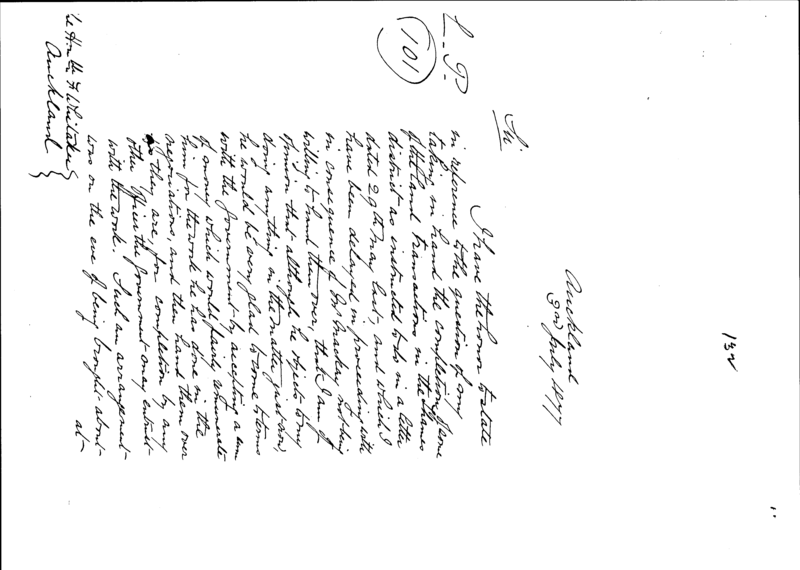 132
Auckland
3rd July 1877
L. P.
101
Sir
I have the honor to state
in reference to the question of my
taking in hand the completion of some
of the land transactions in the Thames
district as instructed to do in a letter
dated 29th May last, and which I
have been delayed in proceeding with
in consequence of Mr Mackay not being
willing to hand them over, that I am of
opinion that although he objects to my
doing anything in the matter just now,
he would be very glad to come to terms
with the Government by accepting a sum
of money which would fairly remunerate
him for the work he has done in the
negociations, and then hand them over
as they are, for completion by any
other Officer the Government may entrust
with the work. Such an arrangement
was on the eve of being brought about
at
The Honble F Whitaker
Auckland